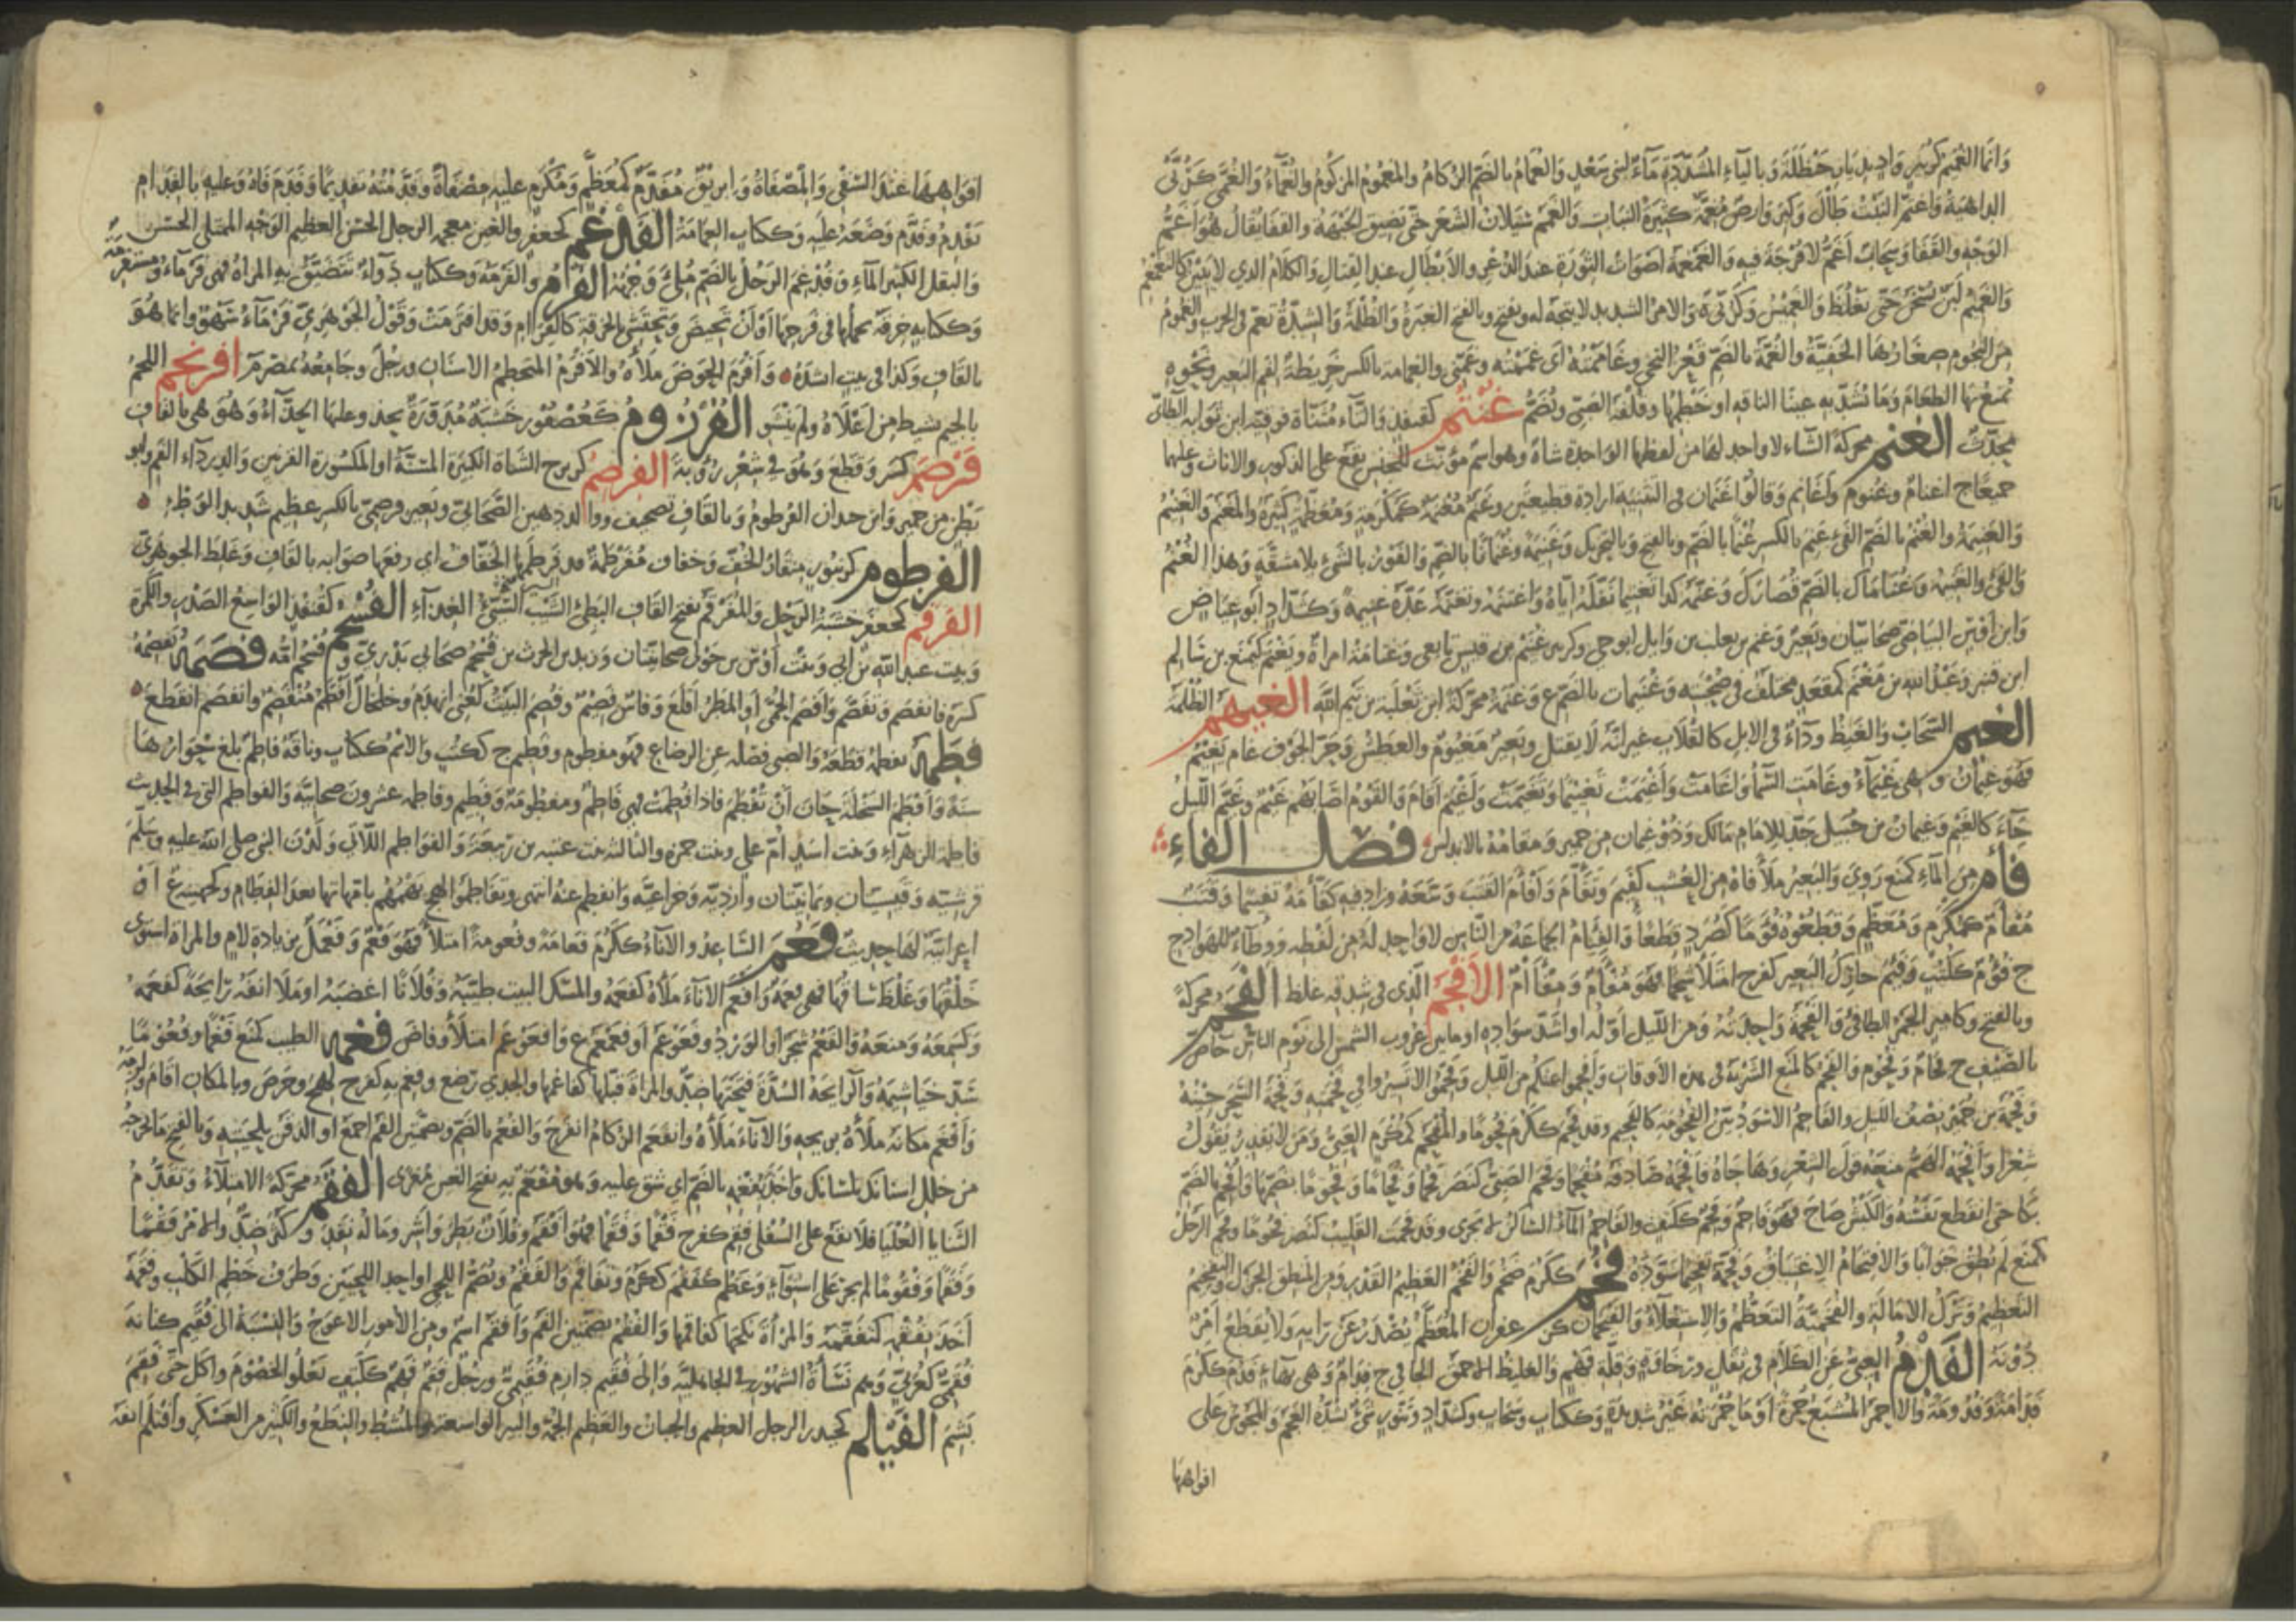 وَانَما الغَميمُ كزُبَير وَادٍ بديَار حَنظَلَةَ وَبالياءِ المُشَدَّدَةِ مَاءٌ لبنى سَعْدٍ وَالغُمَامُ بالضَمّ الزكَامُ والمَغمُومُ المزكُومُ والغَمَّاءُ وَالغُمَّى كرُبّى
الداهيَةُ وَاغتَمَّ النَبْتُ طَالَ وَكثرَ وَارضٌ مُغِمَّةٌ كثيرَةُ النَبات وَالغَمَمُ سَيَلانُ الشَعَرِ حَتّى تَضِيقَ الجَبْهَةُ والقَفَا يُقَالُ هُوَ اَغَمُّ
الوَجْهِ والقَفَا وَسَحَابٌ اَغَمُّ لا فُرْجَةَ فيهِ وَالغَمْغَمَةُ اصْوَاتُ الثوْرَةِ عندَ الذُعْرِ والاَبْطَالِ عندَ القِتَالِ وَالكلامُ الذي لا يَبينُ كالتغَمْغُمِ
وَالغَميمُ لَبَنٌ يُسَخّنُ حَتّى يَغْلُظَ وَالغَميسُ وَ وَالامرُ الشديدُ لا يتجهُ لهُ وبفتح وبالفتح الغَبَرَةُ وَالظُلْمَةُ وَالشِدَّةُ تَغُمّ فى الحرب والغُمُومُ
مِنَ النُجُومِ صغَارُهَا الخَفيَّةُ وَالغُمَّةُ بالضَمّ قَعْرُ النِحْي وغَامَمْتُهُ اَى غَمَمْتُه وَغَمَّنى والغِمَامَة بالكسر خَرِيطَةٌ لفم البَعير وَنَحْوِهِ
تُمنَعُ بهَا الطعَامَ وَمَا تُشَدّ بهِ عينَا الناقةِ اوخَطْمُهَا وقُلْفَةُ الصَبِىّ وَتُضَمُّ غُنْتُم كقنفذ وَالتَّاءُ مُثَنَّاة فوقيّة ابن ثوابة الطائىّ
مُحَدِّثٌ الغنم محركةً الشاءُ لا واحدَ لهَا من لفظهَا الوَاحدة شاةٌ وهو اسم مؤنث للجنس يقَع على الذكور والاناث وعليهما
جميعًا ج اغنامٌ وغُنُوم وَاَغَانِم وَقَالوا غَنَمَان فى التَثنيَة ارادة قطيعَين وَغَنَمٌ مُغْنَمَةٌ كمُكْرَمَة وَمُغَنَّمَةٌ كثيرَةٌ وَالمَغْنَمُ والغَنيمُ
وَالغَنيمَةُ والغُنْمُ بالضَمّ الفَىْءُ غَنِمَ بالكسر غُنْمًا بالضَمّ وبالفتح وَبالتحريك وَغَنيمَةً وغُنْمَانًا بالضَمّ وَالفَوْزُ بالشَىْءِ بلا مشقّةٍ وَهذا الغُنْمُ
وَالفَىْءُ والغَنيمَةُ وَغُنَامَاكَ بالضَمّ قُصَارَاكَ وَغَنَّمَهُ كذا تَغنيمًا نَفَّلَهُ ايّاهُ وَاغتَنَمَهُ وتغَنَّمَهُ عَدَّهُ غنيمةً وَكشَدّادٍ اَبُو عيَاض
وَابن اَوْسٍ البَيَاضىّ صحَابيَّان وبَعيرٌ وَغَنْمُ بن تغلبَ بن وَايل ابو حى وكزبير غُنَيْمُ بن قيسٍ تابعى وَغنَامَةُ امرأةٌ ويَغْنَمُ كيَمنَع بن سَالم
ابن قنبر وَعَبْدُ الله بن مَغْنَم كمَقعَدٍ مختلَف فى صُحْبَته وَغُنَيمَات بالضَمّ ع وَغَنَمَةُ محرّكةً ابن ثَعْلَبَة بن تَيْم الله الغيهم الظُلْمَة
الغيم السَحَابُ وَالغَيظُ ودآءٌ فى الابل كالقُلاب غير انّهُ لا يَقتلُ وبَعيرٌ مَغيُومٌ والعَطَشُ وَحَرُّ الجَوْف غام يَغِيمُ
فهُوَ غيمَانُ وهى غَيْمَى وغَامَتِ السّمَاءُ وَاغَامَت وَاَغْيَمَت وغَيَّمَت تَغْييمًا وتَغَيَّمَت وَاَغْيَمَ اَقَامَ وَالقَوْمُ اصَابَهُم غَيْمٌ وغَيَّمَ اللَيلُ
جَآءَ كالغَيم وَغَيمانُ بن خُثَيل جَدّ للامام مَالك وَذُو غيمان من حمير وَمغَامَةُ بالاندلس فصل الفاء
فأم منَ المآءِ كمَنَعَ رَوِىَ وَالبَعيرُ مَلأ فاهُ منَ العُشب كفَئِمَ وتَفَأّمَ وَاَفْأَمَ القَتَبَ وَسَّعَهُ وزاد فيهِ كفَأَّمَهُ تفئيمًا وَقَتَبٌ
مُفْأَمٌ كمُكْرَمٍ وَمُعَظَّمٍ وَقَطَّعُوهُ فُؤَمًا كصُرَد قِطَعًا وَالفِئَامُ الجمَاعَةُ من النَّاس لا وَاحدَ لهُ من لَفْظه ووطَآءٌ للهوادج
ج فُؤُم ككُتُب وَفَئِمَ حَارِكُ البَعير كفرح امتَلأ شحمًا فَهُوَ مُفْأَمٌ وَمِفْآمٌ الافجم الّذى فى شدقه غلظ الفحم محركةً
وبالفتح وكامير الجَمْرُ الطافئُ وَالفَحمَةُ وَاحدَتُهُ وَمِنَ اللَيل اَوّلُه اواشَدّ سوادِه اوما بين غروب الشمس الى نَوْم الناس خاصّ
بالصَيف ج فِحَامٌ وَفُحُومٌ وَالفَحم كالمنع الشَرْبَةُ فى هذه الاَوقات وَاَفحِمُوا عنكم من اللَيل وَفَحّمُوا لا تسيروا فى فَحْمَته وَفَحمَةُ السَحَر حينُهُ
وَفَحمَةُ بن جُمَيْر نِصْفُ اللَيل والفَاحمُ الاسْوَدُ بَيّنُ الفُحُومَة كالفَحيم وقد فَحُمَ ككَرُمَ فُحُومًا والمُفحَم كمُكْرَم العَيىُّ وَمَن لا يَقدِرُ يَقُولُ
شعْرًا وَاَفحَمَهُ الهَمُّ مَنَعَهُ قولَ الشِعْر وَهَاجَاهُ فاَفحَمَهُ صَادفَهُ مُفحَمًا وَفَحَمَ الصَبىّ كنَصَرَ فَحْمًا وَفُحَامًا وَفُحُومًا بضمّهما وَاُفحِمَ بالضمّ
بَكَا حَتى انقَطع نَفَسُهُ وَالكبْشُ صَاحَ فَهُوَ فَاحمٌ وَفَحِمٌ ككَتِفٍ والفَاحمُ المآءُ السَّاكنُ لا يَجرى وقد فَحَمَت القَليبُ كنَصَر فُحُومًا وَفحمَ الرَجُلُ
كمَنَعَ لَم يُطِقْ جَوَابًا وَالافتحَامُ الاغتبَاقُ وَفَحّمَهُ تفحيمًا سَوَّدَهُ فخم ككَرُمَ ضَخُمَ وَالفَخْمُ العَظيمُ القَدْر وَمنَ المنطق الجَزْلُ وَالتَفْخيمُ
التَعظيمُ وَتَرْكُ الامَالَةِ والفُخَمِيَّةُ التَعَظُّمُ وَالاسْتِعْلاءُ وَالفَيْخَمَان كزعفرَان المُعَظَّمُ يُصْدَرُ عَنْ رَايهِ وَلا يُقطَعُ اَمْرٌ
دُونَهُ الفدم العَيىُّ عَن الكَلام فى ثِقَلٍ وَرَخَاوَةٍ وَقلّةِ فَهْمٍ وَالغَليظُ الاحمق الجافى ج فِدَام وَهى بهَاءٍ فَدُمَ ككَرُمَ
فَدَامَةً وَفُدُومَةً وَالاحمَرُ المُشْبَعُ حُمْرَةً اَوْ مَا حُمْرَتُهُ غَيْرُ شَديدَةٍ وَككتَاب وَسَحَاب وكشَدّادٍ وَتَنّورٍ شَىْءٌ تشُدّهُ العَجَم وَالمجُوسُ على
افواهها
افواههَا عندَ السَقْىِ وَالمِصْفَاةُ وَابريقٌ مُفَدَّمٌ كمُعَظَّمٍ وَمُكْرَمٍ عليهِ مِصْفَاةٌ وَفَدَّمْتُهُ تفديمًا وَفَدَمَ فَاهُ وَعليهِ بالفِدَام
يَفْدِمُ وَفَدَّمَ وَضَعَهُ عليه وَككتاب العِمَامَةُ الفدغم كجعفر والغين معجمة الرجل الحَسَنُ العظيم الوَجْه الممتلى الحسن
وَالبَقلُ الكثيرُ المَآءِ وَفُدْغِمَ الرَجُلُ بالضَمّ مُلِئَ وَجْهُهُ الفرم والفَرمَةُ وَككتاب دَوَآءٌ تَتَضَيَّقُ بهِ المَرْأةُ فهى فَرْمَآءُ ومُسْتَفْرِمَةٌ
وَككتابة خرقةٌ تحملُها فى فَرْجهَا اَوْ اَنْ تَحيضَ وَتحتَشىَ بالخرقة كالفِرَام وَقد افتَرَمَتْ وَقَوْلُ الجَوْهَرىّ فَرْمَآءُ سَهْوٌ وانمَا هُوَ
بالقَاف وَكذا فى بيت انشَدَهُ وَاَفْرَمَ الحَوْضَ مَلأهُ والاَفْرَمُ المتحطم الاسنَان ورَجُلٌ وَجَامعُهُ بمصْرَ م افرنجم اللحمُ
بالجيم يشيط من اَعْلاهُ ولَم يَنْشَو الفرزوم كعُصْفُور خَشَبَةٌ مُدَوّرَةٌ يحذو عليهَا الحذّاءُ وَهُوَ هى بالقَاف
فرصم كسَرَ وَقطعَ وَهُوَ فى شعْر رُؤبَةَ الفرضم كزبرج الشاة الكبيرَة المسنَّةُ او المكسورة القرنين وَالدرداء الفَم وابو
بَطْنٍ من حمير وابن الفُرطُوم وَبالقَاف تصحيف ووالد ذهبن الصَحَابىّ وبَعير فرضمىّ بالكسر عظيم شَديد الوَطْءِ
الفرطوم كزنبُور منقَارُ الخُفّ وَخفاف مُفَرْطَمَةٌ وقد فرطمها الخفّاف اى رقعها صوابه بالقَاف وَغلط الجوهرىّ
الفرقم كجعفر حَشَفَةُ الرجل وَالمُفَرْقَمُ بفتح القَاف البَطئ الشَيْب السَّيّئُ الغذآءِ الفسحم كقنفذ الوَاسِعُ الصَدْر والكَمَرَة
وَبنت عبد الله بن اُبَى وَبنتُ اَوْس بن خَوْلى صحابيّتان وَيزيد بن الحرث بن فُسْحُم صحابى بَدْرىّ وفُسْحُم اُمّه فصمه يَفْصِمُهُ
كسَرَهُ فانفصَمَ وَتَفَصَّمَ وَاَفصَمَ الحُمَّى اَو المَطَرُ اَقلعَ وَفَاسٌ فَصِيمٌ وفُصِمَ البَيْتُ كعُنِىَ انهَدَمَ وخَلخَالٌ اَفْصَمُ مُنْفَصِمٌ وَانفَصَمَ انقَطَعَ
فطمه يفطمُهُ قَطَعَهُ وَالصَبىَّ فصَلَهُ عن الرضَاع فَهُوَ مفطوم وفَطيم ج ككتُب والاسم ككتاب وناقة فاطمٌ بلغَ حُوَارُهَا
سَنَةً وَاَفطَمَتِ السَخْلَةُ حَانَ اَنْ تُفْطَمَ فاذا فُطِمَت فهى فَاطمٌ ومَفطومَةٌ وَفَطيم وفاطمة عشرون صحابيَّة وَالفواطم التى فى الحديث
فاطمة الزهرآءِ وبنت اَسَدٍ اُمّ على وبنت حمزة والثالثة بنت عتبة بن رَبيعَةَ وَالفوَاطم اللّاتى وَلَدْنَ النبى صلى الله عليه وسلم
قرشيّة وَقيسيّتان ويمانيّتان وازديّة وَخزاعيّة وَانفطم عنهُ انتهى وتفَاطَمُوا لهج بَهْمُهُم بامّهاتها بعد الفطَام وكجهينة ع اَوْ
اعرابيَّة لهَا حديث فعم السَّاعدُ والاناءُ ككَرُمَ فَعَامَةً وفُعُومَةً امتلأ فَهُوَ فَعْمٌ وَفَعْمَلٌ بزيادة لام والمَراة استوى
خَلْقُهَا وَغَلُظَ سَاقُهَا فهى فَعْمَةٌ وَاَفعَمَ الانآءَ مَلأهُ كفَعَمَهُ والمسْكُ البيت طيَّبَهُ وَفُلانًا اغضَبَهُ اومَلأ انفَهُ رَايحَةً كفَعَمَهُ
وَكسَمَعَهُ وَمَنعَهُ وَالفَعْمُ شَجَرٌ اَو الوَرْدُ وَفَعَوْعَمٌ اَو فَعَمْعَم ع وَافعَوْعَمَ امتلأ وفَاضَ فغمه الطيب كمَنَعَ فَغْمًا وفُغُومًا
سَدّ خيَاشيمَهُ وَالرَايحَةُ السُدّةَ فتَحَتهَا ضِدٌّ والمَراةَ قَبّلهَا كفاغَمَهَا والجَدىُ رَضعَ وفغم به كفرح لهِجَ وحَرصَ وبالمكان اقامَ وَلزمَهُ
وَاَفغَمَ مَكانَهُ مَلأهُ بريحه وَالانآءَ مَلأهُ وانفَغَمَ الزكَامُ انفَرَجَ وَالفُغْمُ بالضَمّ وبضمَّتَين الفَم اجمعُ او الذقن بلحيَيْه وَبالفتح مَا تخرجهُ
من خلل اسنانك بلسَانك وَاخَذَ بفُغْمه بالضَمّ اى شَقَّ عليهِ وَهو مُفْغَمٌ به بفتح الغين مُغْرًى الفقم محركةً الامتلاءُ وَتقدُّمُ
الثنايَا العُليا فلا تقَع على السُفلى فَقِمَ كفرح فَقَمًا وَفَقْمًا فهُوَ اَفْقَمُ وفُلانٌ بَطِرَ وَاَشِرَ وَمَالُهُ نَفِدَ وكثُرَ ضدٌّ وَالامرُ فَقْمًا
وَفَقَمًا وَفُقُومًا لم يجر على استوَآءٍ وَعَظُمَ كفَقُمَ ككَرُمَ وَتفَاقَمَ وَالفَقْمُ وَيُضَمّ اللَحىُ اواحد اللحيين وَطرف خطم الكَلب وفَقَمَهُ
اَخَذَ بفُقْمه كتفَقَّمَهُ وَالمَرْأةَ نكحَهَا كفَاقَمَهَا وَالفُقُم بضمّتَين الفَم وَاَفقَمُ اسم ومِنَ الاُمور الاعوَجُ وَالنسْبَةُ الى فُقَيم كنانة
فُقَمِىٌّ كعُرَنىٍّ وَهم نَسَأةُ الشُهور فى الجَاهليّة وَالى فُقَيم دارم فُقَيمىّ ورَجُلٌ فَقِمٌ فَهِمٌ ككَتِفٍ يَعْلُو الخُصُومَ وَاكَلَ حَتّى فَقِمَ
بَشِمَ الفيلم كحيدر الرجل العظيم وَالجبان والعَظيم الجُمّة والبيرُ الوَاسعَة والمُشط وَالنِطْعُ وَالكثير من العَسْكَر وَافتَلَمَ انفَهُ